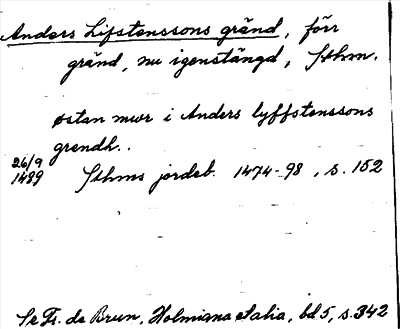 Anders Lifstenssons gränd, förr
gränd, nu igenstängd, Sthm.
østan mwr i Anders lyffstenssons
grendh..
26/9
1489 Sthms jordeb. 1474-98, s. 152
Se Fr. de Brun, Holmiana et alia, bd 5, s. 342